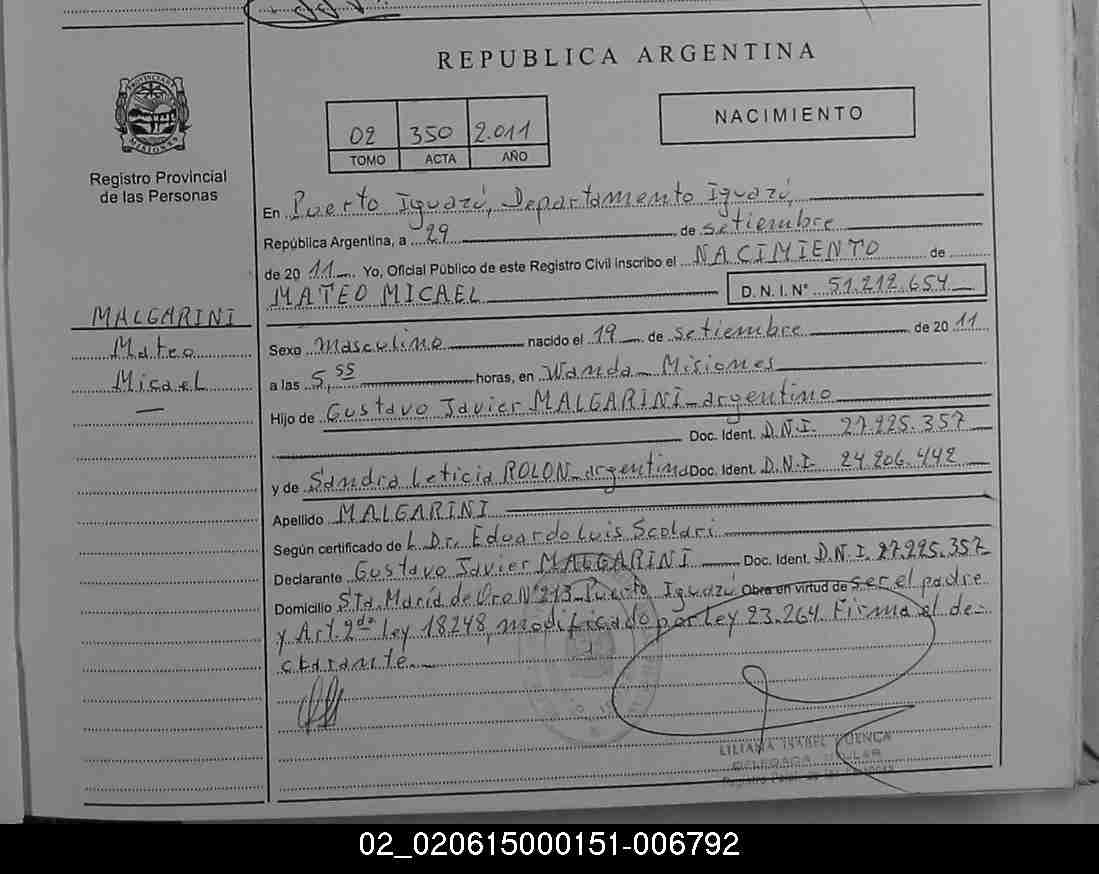 REPUBLICA ARGENTINA
PROVINCIA DE MISIONES
Registro Provincial
de las Personas
02 350 2.011
TOMO ACTA AÑO
NACIMIENTO
En Puerto Iguazú, Departamento Iguazú,
República Argentina, a 29 de setiembre
de 2011 Yo, Oficial Público de este Registro Civil inscribo el NACIMIENTO de
MATEO MICAEL D. N. I. N° 51.212.654
MALGARINI
Mateo
Micael
Sexo Masculino nacido el 19 de setiembre de 2011
a las 5,55 horas, en Wanda - Misiones
Hijo de Gustavo Javier MALGARINI - argentino
Doc. Ident. D.N.I. 27.225.357
y de Sandra Leticia ROLON - argentina Doc. Ident. D.N.I. 24.206.442
Apellido MALGARINI
Según certificado de L Dr. Eduardo Luis Scolari
Declarante Gustavo Javier MALGARINI Doc. Ident. D.N.I. 27.225.357
Domicilio Sta. María de Oro N° 213 - Puerto Iguazú Obra en virtud de ser el padre
y Art. 2do ley 18248, modificado por ley 23.264. Firma el de-
clarante.
LILIANA ISABEL CUENCA
DELEGADA TITULAR
02_020615000151-006792